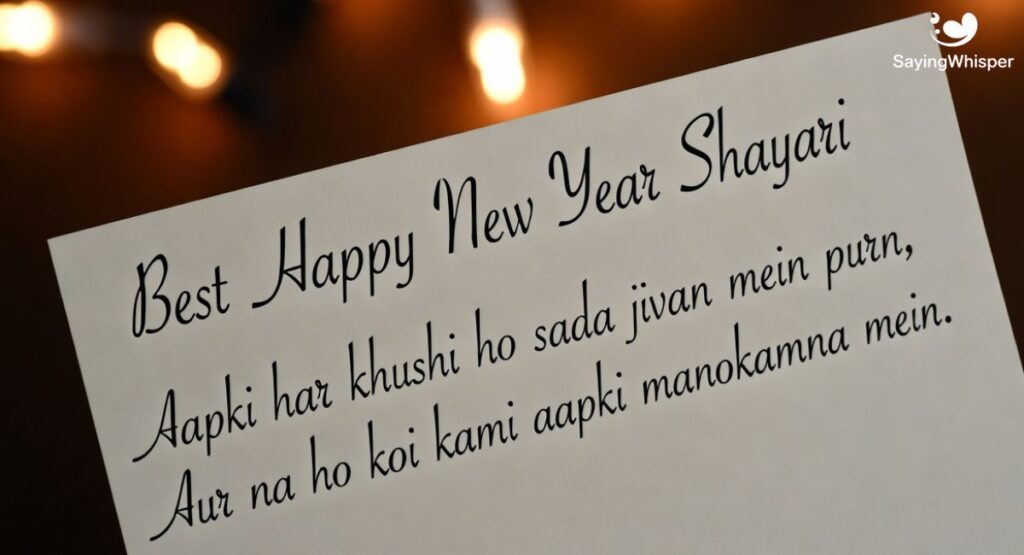 SayingWhisper
Best Happy New Year Shayari
Aapki har khushi ho sada jivan mein purn,
Aur na ho koi kami aapki manokamna mein.